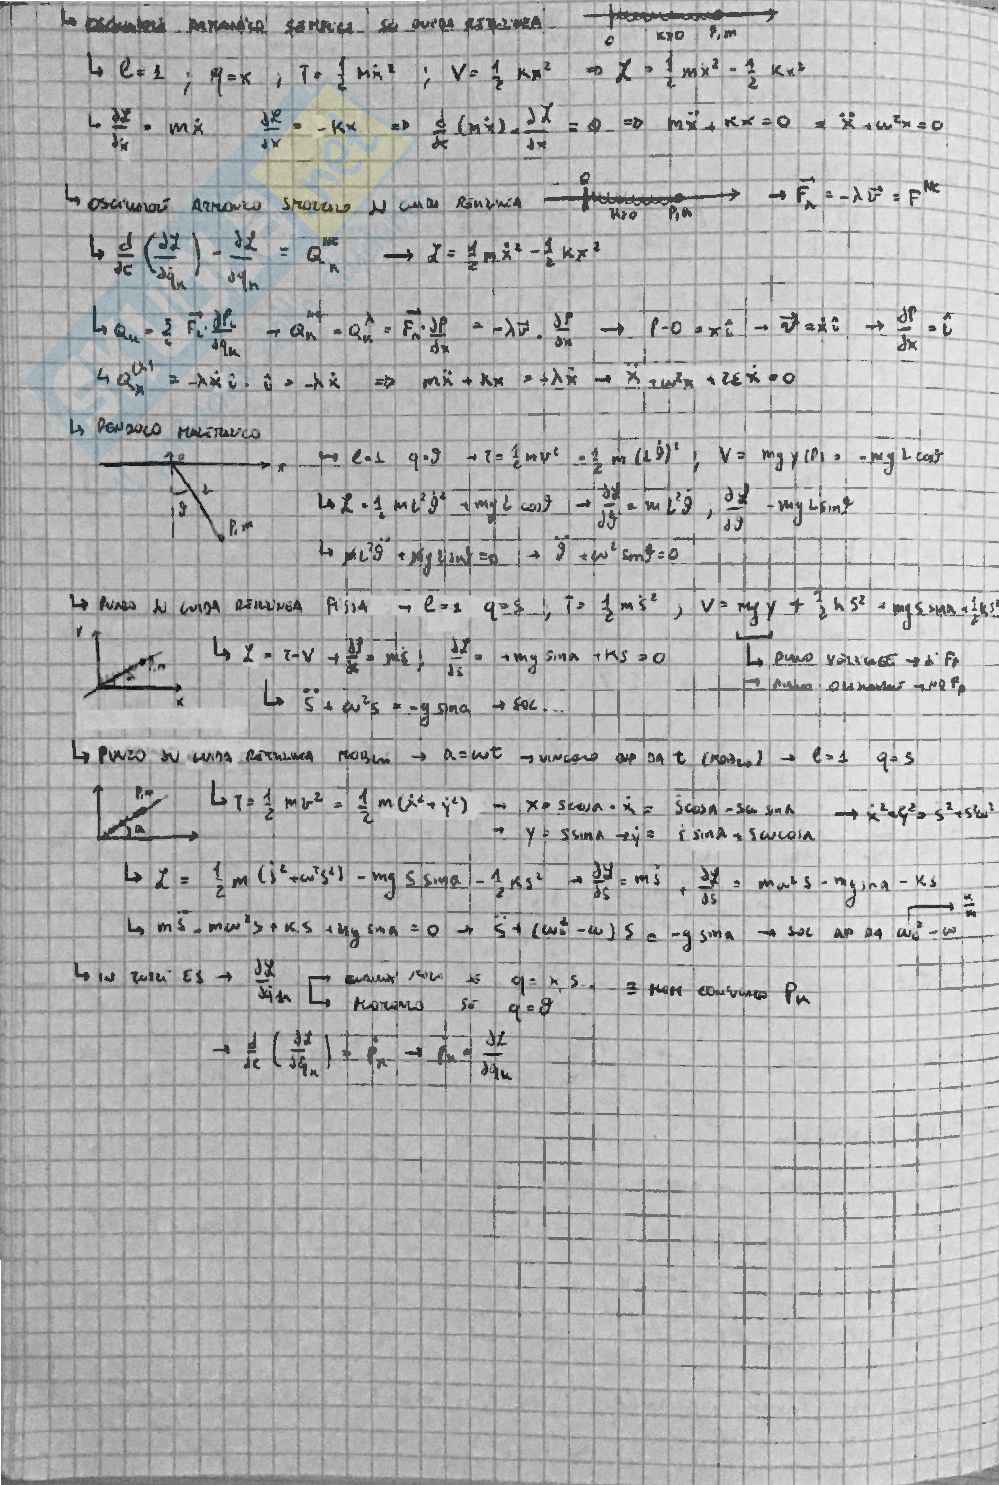 ↳ OSCILLATORE ARMONICO SEMPLICE SU GUIDA RETTILINEA
O K>0 P,m
↳ l=1 ; q=x ; T=1/2 mẋ² ; V=1/2 Kx² ⇒ ℒ = 1/2 mẋ² - 1/2 Kx²
↳ ∂ℒ/∂ẋ = mẋ ∂ℒ/∂x = -Kx ⇒ d/dt (mẋ) - ∂ℒ/∂x = 0 ⇒ mẍ + Kx = 0 = ẍ + ω²x = 0
↳ OSCILLATORE ARMONICO SMORZATO SU GUIDA RETTILINEA O K>0 P,m → F = -λv = F^NC
↳ d/dt (∂ℒ/∂q̇_k) - ∂ℒ/∂q_k = Q_k^NC → ℒ = 1/2 mẋ² - 1/2 Kx²
↳ Q_k = Σ F_i · ∂P_i/∂q_k → Q_k = Q^λ = F · ∂P/∂x = -λv · ∂P/∂x → P-O = xî → v = ẋî → ∂P/∂x = î
↳ Q_x^(λ) = -λẋî · î = -λẋ ⇒ mẍ + Kx = +λẋ → ẍ + ω²x + 2εẋ = 0
↳ PENDOLO MATEMATICO
O x L ϑ P,m
↳ l=1 q=ϑ → T=1/2 mv² = 1/2 m (Lϑ̇)² ; V = mgy(P) = -mgLcosϑ
↳ ℒ = 1/2 mL²ϑ̇² + mgLcosϑ → ∂ℒ/∂ϑ̇ = mL²ϑ̇ ; ∂ℒ/∂ϑ -mgLsinϑ
↳ mL²ϑ̈ + mgLsinϑ = 0 → ϑ̈ + ω²sinϑ = 0
↳ PUNTO SU GUIDA RETTILINEA FISSA → l=1 q=s ; T=1/2 mṡ² ; V = mgy + 1/2 ks² = mgs sinα + 1/2 ks²
Y P,m α x
↳ ℒ = T-V → ∂ℒ/∂ṡ = mṡ ; ∂ℒ/∂s = +mg sinα + Ks = 0
↳ PIANO VERTICALE → Sì Fp
→ PIANO ORIZZONTALE → NO Fp
↳ s̈ + ω²s = -g sinα → SOL...
↳ PUNTO SU GUIDA RETTILINEA MOBILE → α=ωt → VINCOLO DIP DA t (MOBILE) → l=1 q=s
P,m α
↳ T=1/2 mv² = 1/2 m(ẋ²+ẏ²) → x = s cosα → ẋ = ṡcosα - sω sinα → ẋ²+ẏ² = ṡ²+s²ω²
→ y = s sinα → ẏ = ṡ sinα + sωcosα
↳ ℒ = 1/2 m (ṡ²+ω²s²) - mg s sinα - 1/2 Ks² → ∂ℒ/∂ṡ = mṡ , ∂ℒ/∂s = mω²s - mg sinα - Ks
↳ ms̈ - mω²s + Ks + mg sinα = 0 → s̈ + (ω₀² - ω) s = -g sinα → SOL DIP DA ω₀² - ω K/m
↳ IN TUTTI ES → ∂ℒ/∂q̇_k SE q = x, s. ≡ MOM CONIUGATO P_k
↳ MOMENTO SE q=ϑ
→ d/dt (∂ℒ/∂q̇_k) = ṗ_k → p_k = ∂ℒ/∂q̇_k